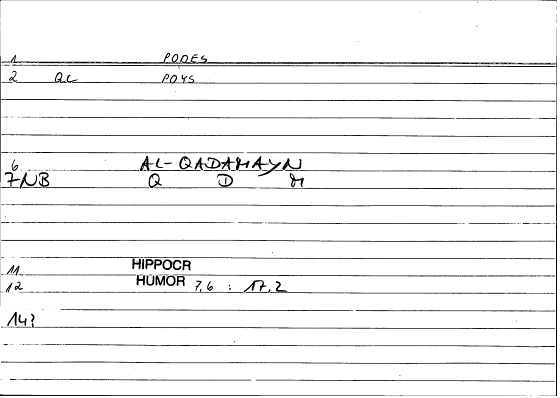 1 PODES
2 QC POYS
6 AL-QADAMAYN
7NB Q D M
11 HIPPOCR
12 HUMOR 7,6 : 17,2
14?